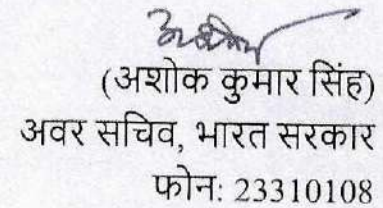 (अशोक कुमार सिंह)
अवर सचिव, भारत सरकार
फोन: 23310108